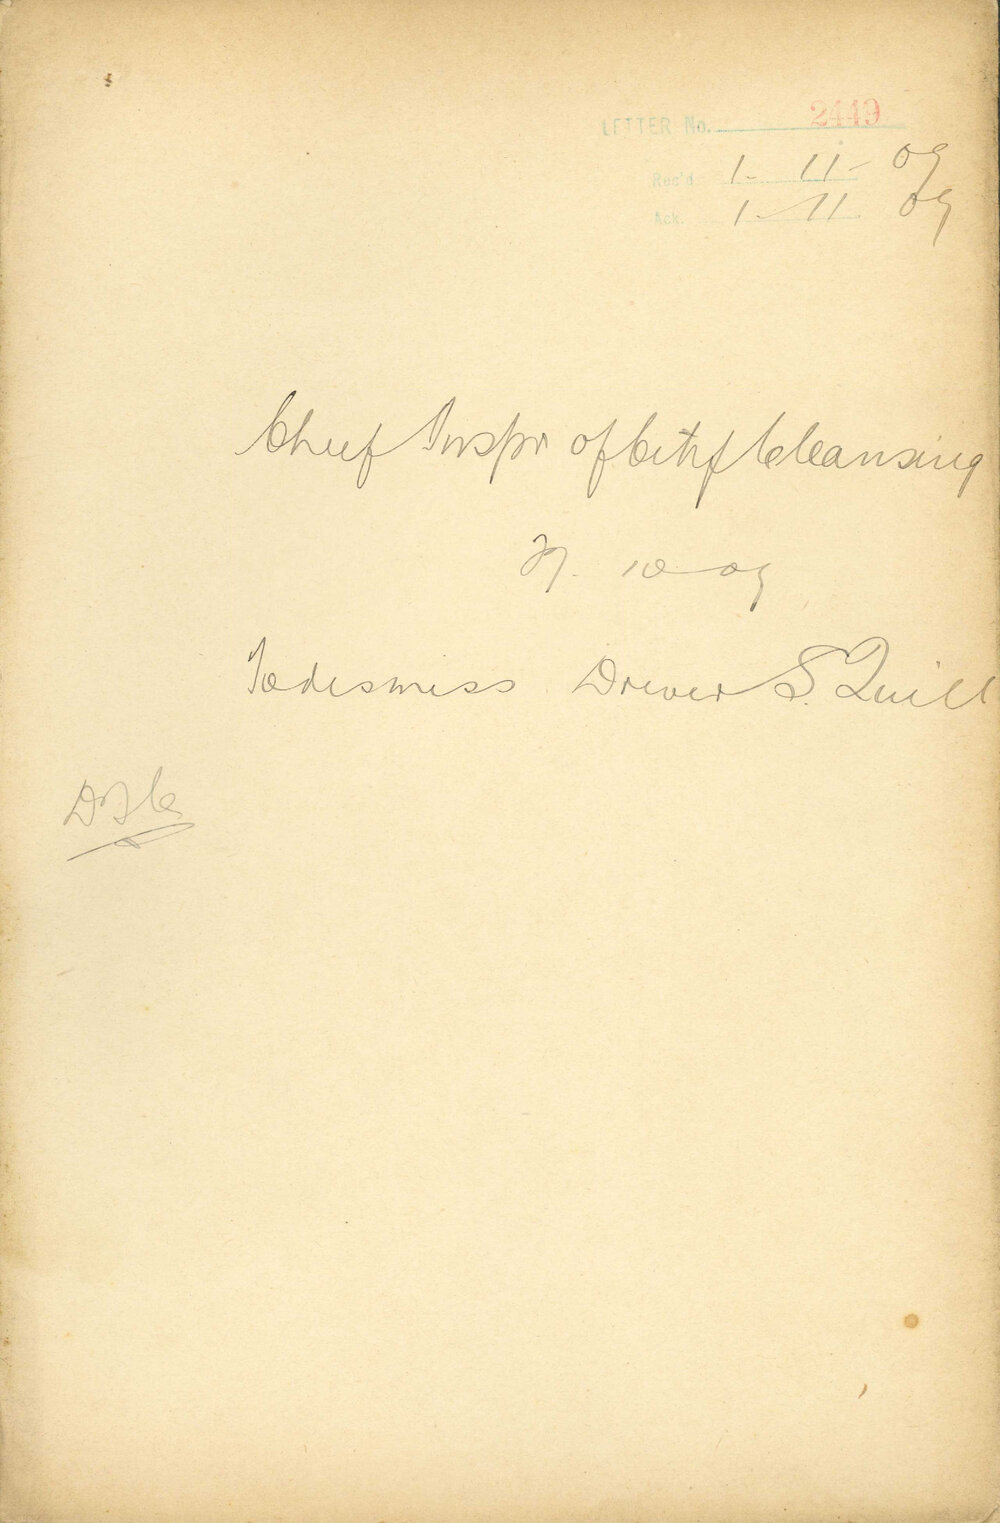 LETTER No. 2449
Rec'd 1-11-09
Ack. 1-11 09
Chief Inspr of City Cleansing
29. 10 09
To dismiss Driver S. Quill